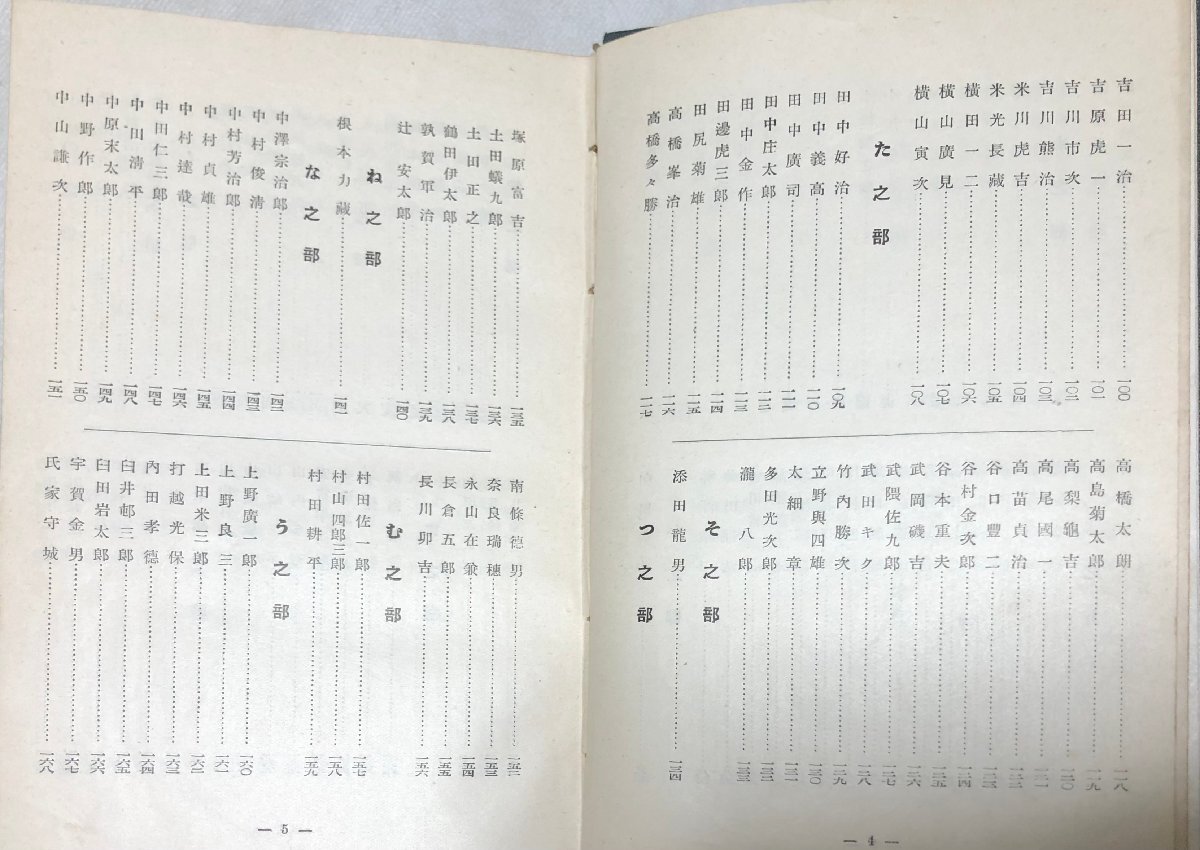 吉田一治……一〇〇
吉原虎一……一〇一
吉川市次……一〇二
吉川熊治……一〇三
米川虎吉……一〇四
米光長藏……一〇五
橫田一二……一〇六
橫山廣見……一〇七
橫山寅次……一〇八
た之部
田中好治……一〇九
田中義高……一一〇
田中廣司……一一一
田中庄太郎……一一二
田中金作……一一三
田邊虎三郎……一一四
田尻菊雄……一一五
高橋峯治……一一六
高橋多々勝……一一七
高橋太朗……一一八
高島菊太郎……一一九
高梨龜吉……一二〇
高尾國一……一二一
高苗貞治……一二二
谷口豐二……一二三
谷村金次郎……一二四
谷本重夫……一二五
武岡磯吉……一二六
武隈佐九郎……一二七
武田キク……一二八
竹內勝次……一二九
立野與四雄……一三〇
太細章……一三一
多田光次郎……一三二
瀧八郎……一三三
そ之部
添田龍男……一三四
つ之部
— 4 —
塚原富吉……一三五
土田蟻九郎……一三六
土田正之……一三七
鶴田伊太郎……一三八
敦賀軍治……一三九
辻安太郎……一四〇
ね之部
根本力藏……一四一
な之部
中澤宗治郎……一四二
中村俊淸……一四三
中村芳治郎……一四四
中村貞雄……一四五
中村達哉……一四六
中田仁三郎……一四七
中田淸平……一四八
中原末太郎……一四九
中野作郎……一五〇
中山謙次……一五一
南條德男……一五二
奈良瑞穗……一五三
永山在兼……一五四
長倉五郎……一五五
長川卯吉……一五六
む之部
村田佐一郎……一五七
村山四郎三郎……一五八
村田耕平……一五九
う之部
上野廣一郎……一六〇
上野良三……一六一
上田米三郎……一六二
打越光保……一六三
內田孝德……一六四
臼井邨三郎……一六五
臼田岩太郎……一六六
宇賀金男……一六七
氏家守城……一六八
— 5 —